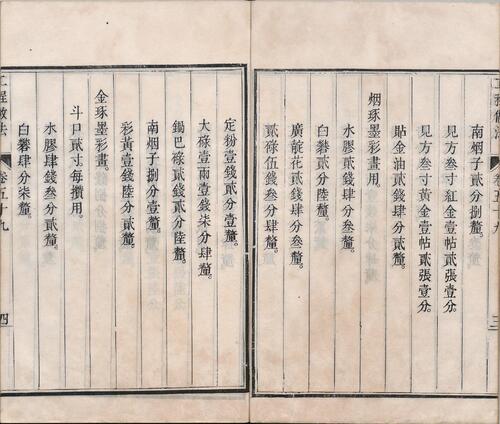 工程做法
卷五十九
三
南烟子貳分捌釐。
見方叁寸紅金壹帖貳張壹分。
見方叁寸黃金壹帖貳張壹分。
貼金油貳錢肆分貳釐。
烟琢墨彩畫用。
水膠貳錢肆分叁釐。
白礬貳分陸釐。
廣靛花貳錢肆分叁釐。
貳祿伍錢叁分肆釐。
定粉壹錢貳分壹釐。
大碌壹兩壹錢柒分肆釐。
鍋巴碌貳錢貳分陸釐。
南烟子捌分壹釐。
彩黃壹錢陸分貳釐。
金琢墨彩畫。
斗口貳寸每攢用。
水膠肆錢叁分貳釐。
白礬肆分柒釐。
工程做法
卷五十九
四